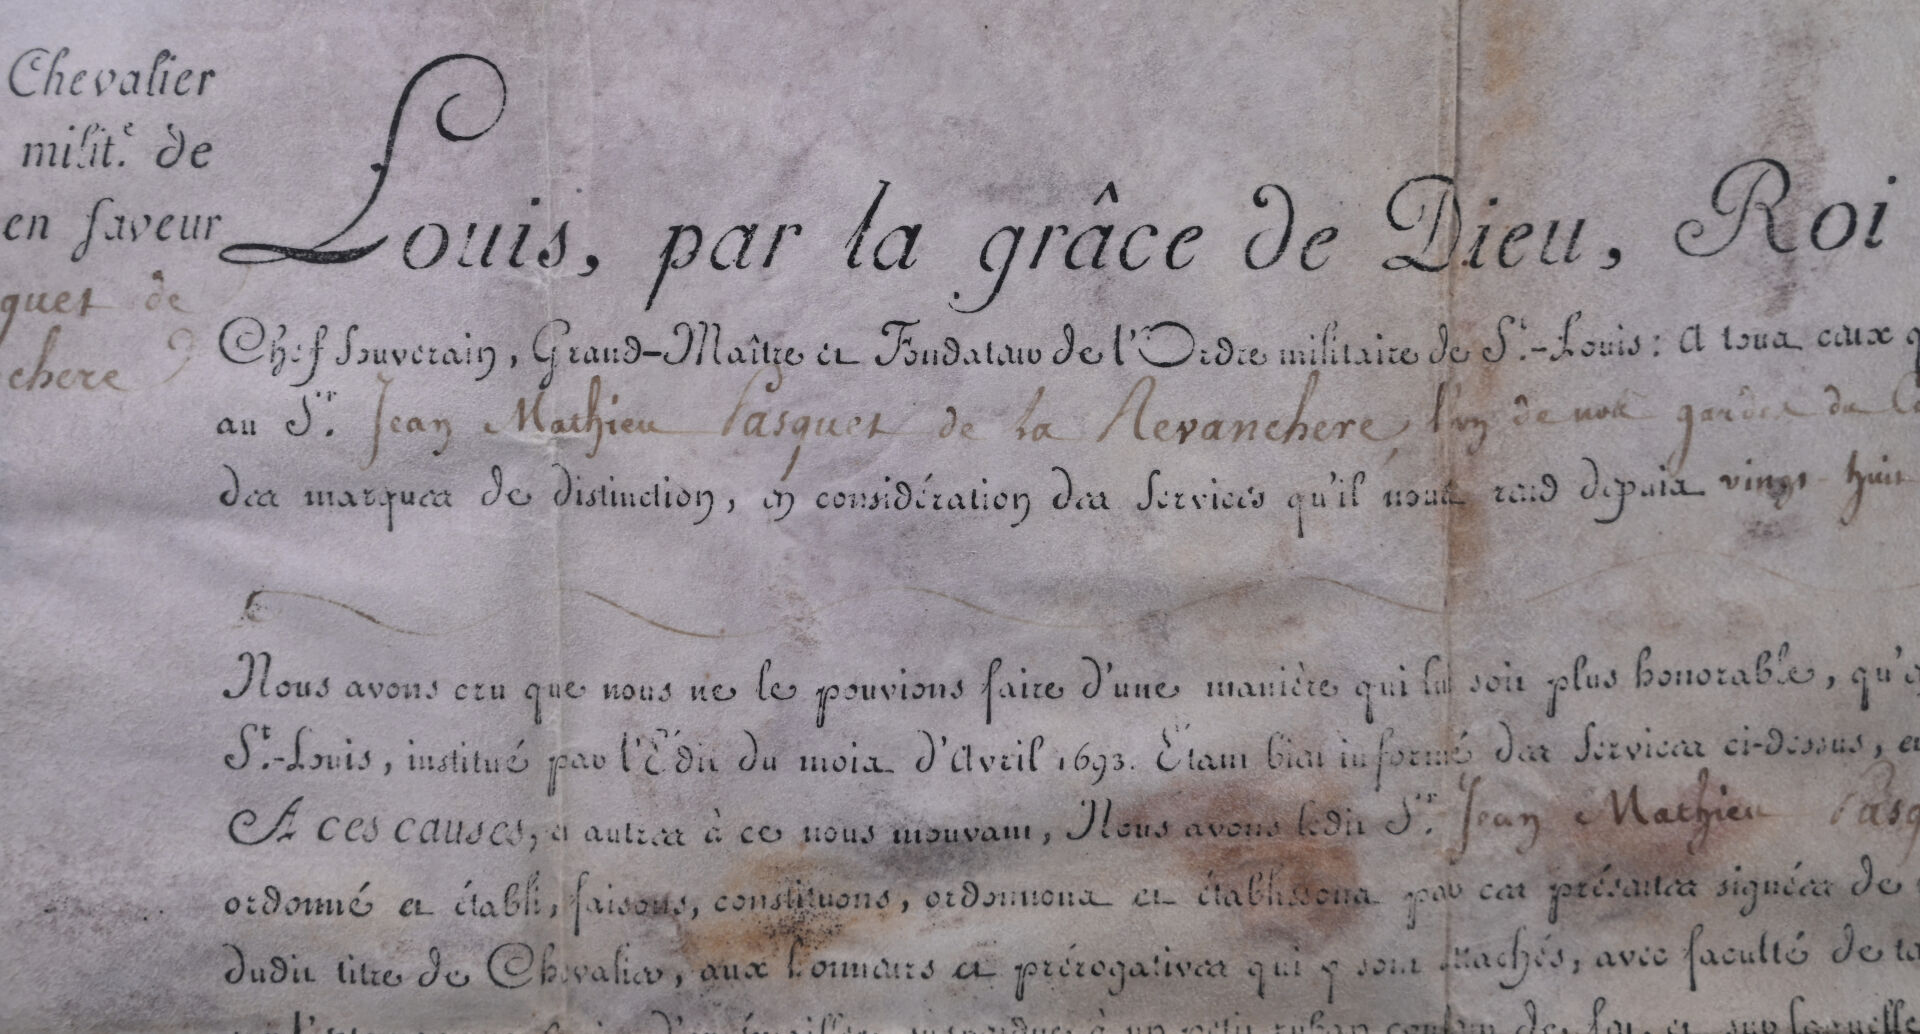 Chevalier
milit.e de
en faveur
quet de
chere
Louis, par la grâce de Dieu, Roi
Chef Souverain, Grand-Maître et Fondateur de l'Ordre militaire de St.-Louis: A tous ceux q
au Sr. Jean Mathieu Pasquet de la Revanchere l'un de nos gardes du Co
des marques de distinction, en considération des Services qu'il nous rend depuis vingt-huit
Nous avons cru que nous ne le pouvions faire d'une manière qui lui soit plus honorable, qu'e
St.-Louis, institué par l'Édit du mois d'Avril 1693. Étant bien informé des Services ci-dessus, et
A ces causes, et autres à ce nous mouvant, Nous avons ledit Sr. Jean Mathieu Pasq
ordonné et établi, faisons, constituons, ordonnons et établissons par ces présentes signées de
dudit titre de Chevalier, aux honneurs et prérogatives qui y sont attachés, avec faculté de
d'or émaillée, suspendue à un petit ruban couleur de feu, et sur laquelle